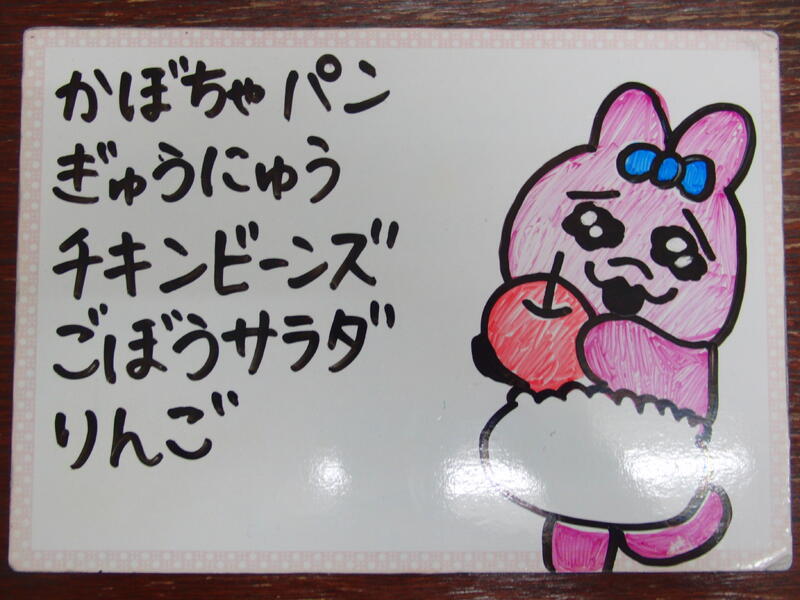 かぼちゃパン
ぎゅうにゅう
チキンビーンズ
ごぼうサラダ
りんご